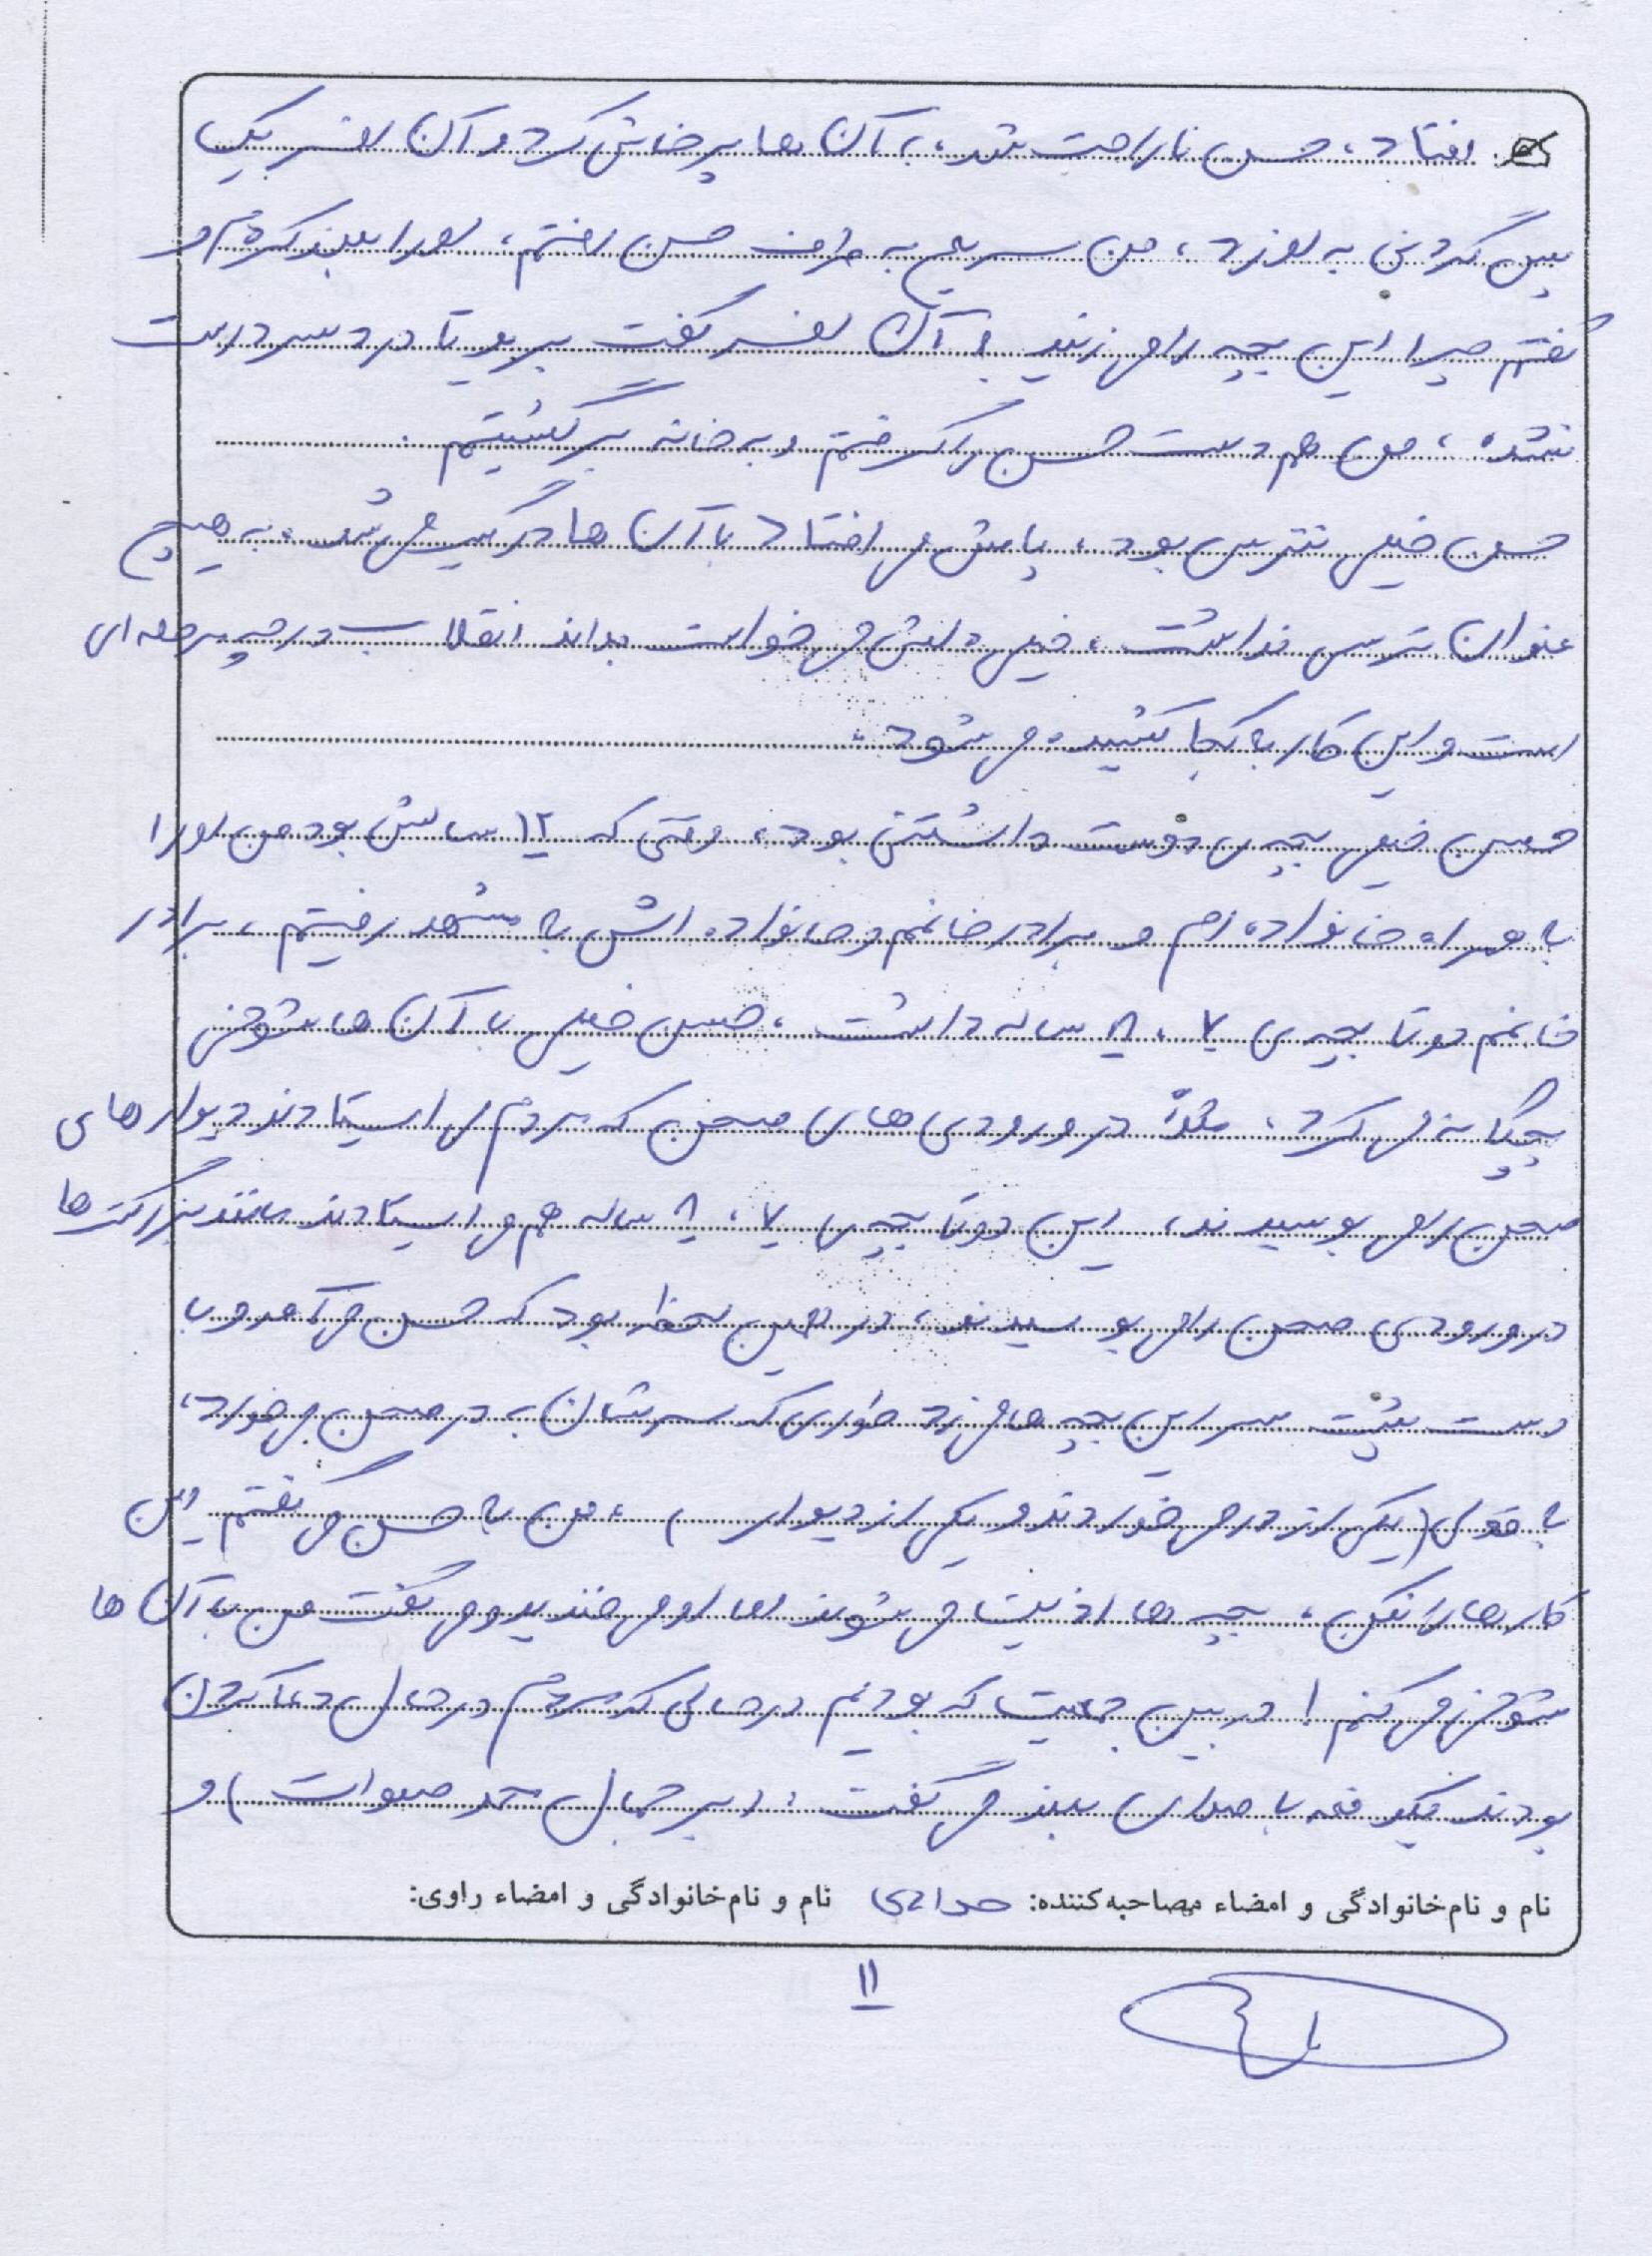 افتاد، حسن ناراحت شد، به آن ها پرخاش کرد و آن افسر یک
پس گردنی به او زد، من سریع به طرف حسن رفتم، او را بلند کردم و
گفتم چرا این بچه را می زنید؟ آن افسر گفت ببر برو تا دردسر درست
نشده، من هم دست حسن را گرفتم و به خانه برگشتیم.
حسن خیلی نترس بود، پایش می افتاد با آن ها درگیر می شد، به هیچ
عنوان ترس نداشت، خیلی دلش می خواست بداند انقلاب در چه مرحله ای
است و این کار به کجا کشیده می شود.
حسن خیلی بچه ی دوست داشتنی بود، وقتی که ۱۲ سالش بود من او را
به همراه خانواده ام و برادر خانمم و خانواده اش به مشهد رفتیم، برادر
خانمم دو تا بچه ی ۷، ۸ ساله داشت، حسن خیلی با آن ها شوخی
بچگانه می کرد، مثلاً در ورودی های صحن که مردم می ایستادند دیوارهای
صحن را می بوسیدند، این دو تا بچه ی ۷، ۸ ساله هم می ایستادند مانند بزرگترها
در ورودی صحن را می بوسیدند، در همین لحظه بود که حسن می آمد و با
دست پشت سر این بچه ها می زد طوری که سرشان به در صحن می خورد،
به قولی (یکی از در می خوردند و یکی از دیوار)، من به حسن می گفتم این
کارها را نکن، بچه ها اذیت می شوند اما او می خندید و می گفت من با آن ها
شوخی می کنم! در بین جمعیت که بودیم در حالی که مردم در حال دعا کردن
بودند یکدفعه با صدای بلند می گفت: (بر جمال محمد صلوات) و
نام و نام خانوادگی و امضاء مصاحبه کننده: نام و نام خانوادگی و امضاء راوی:
۱۱